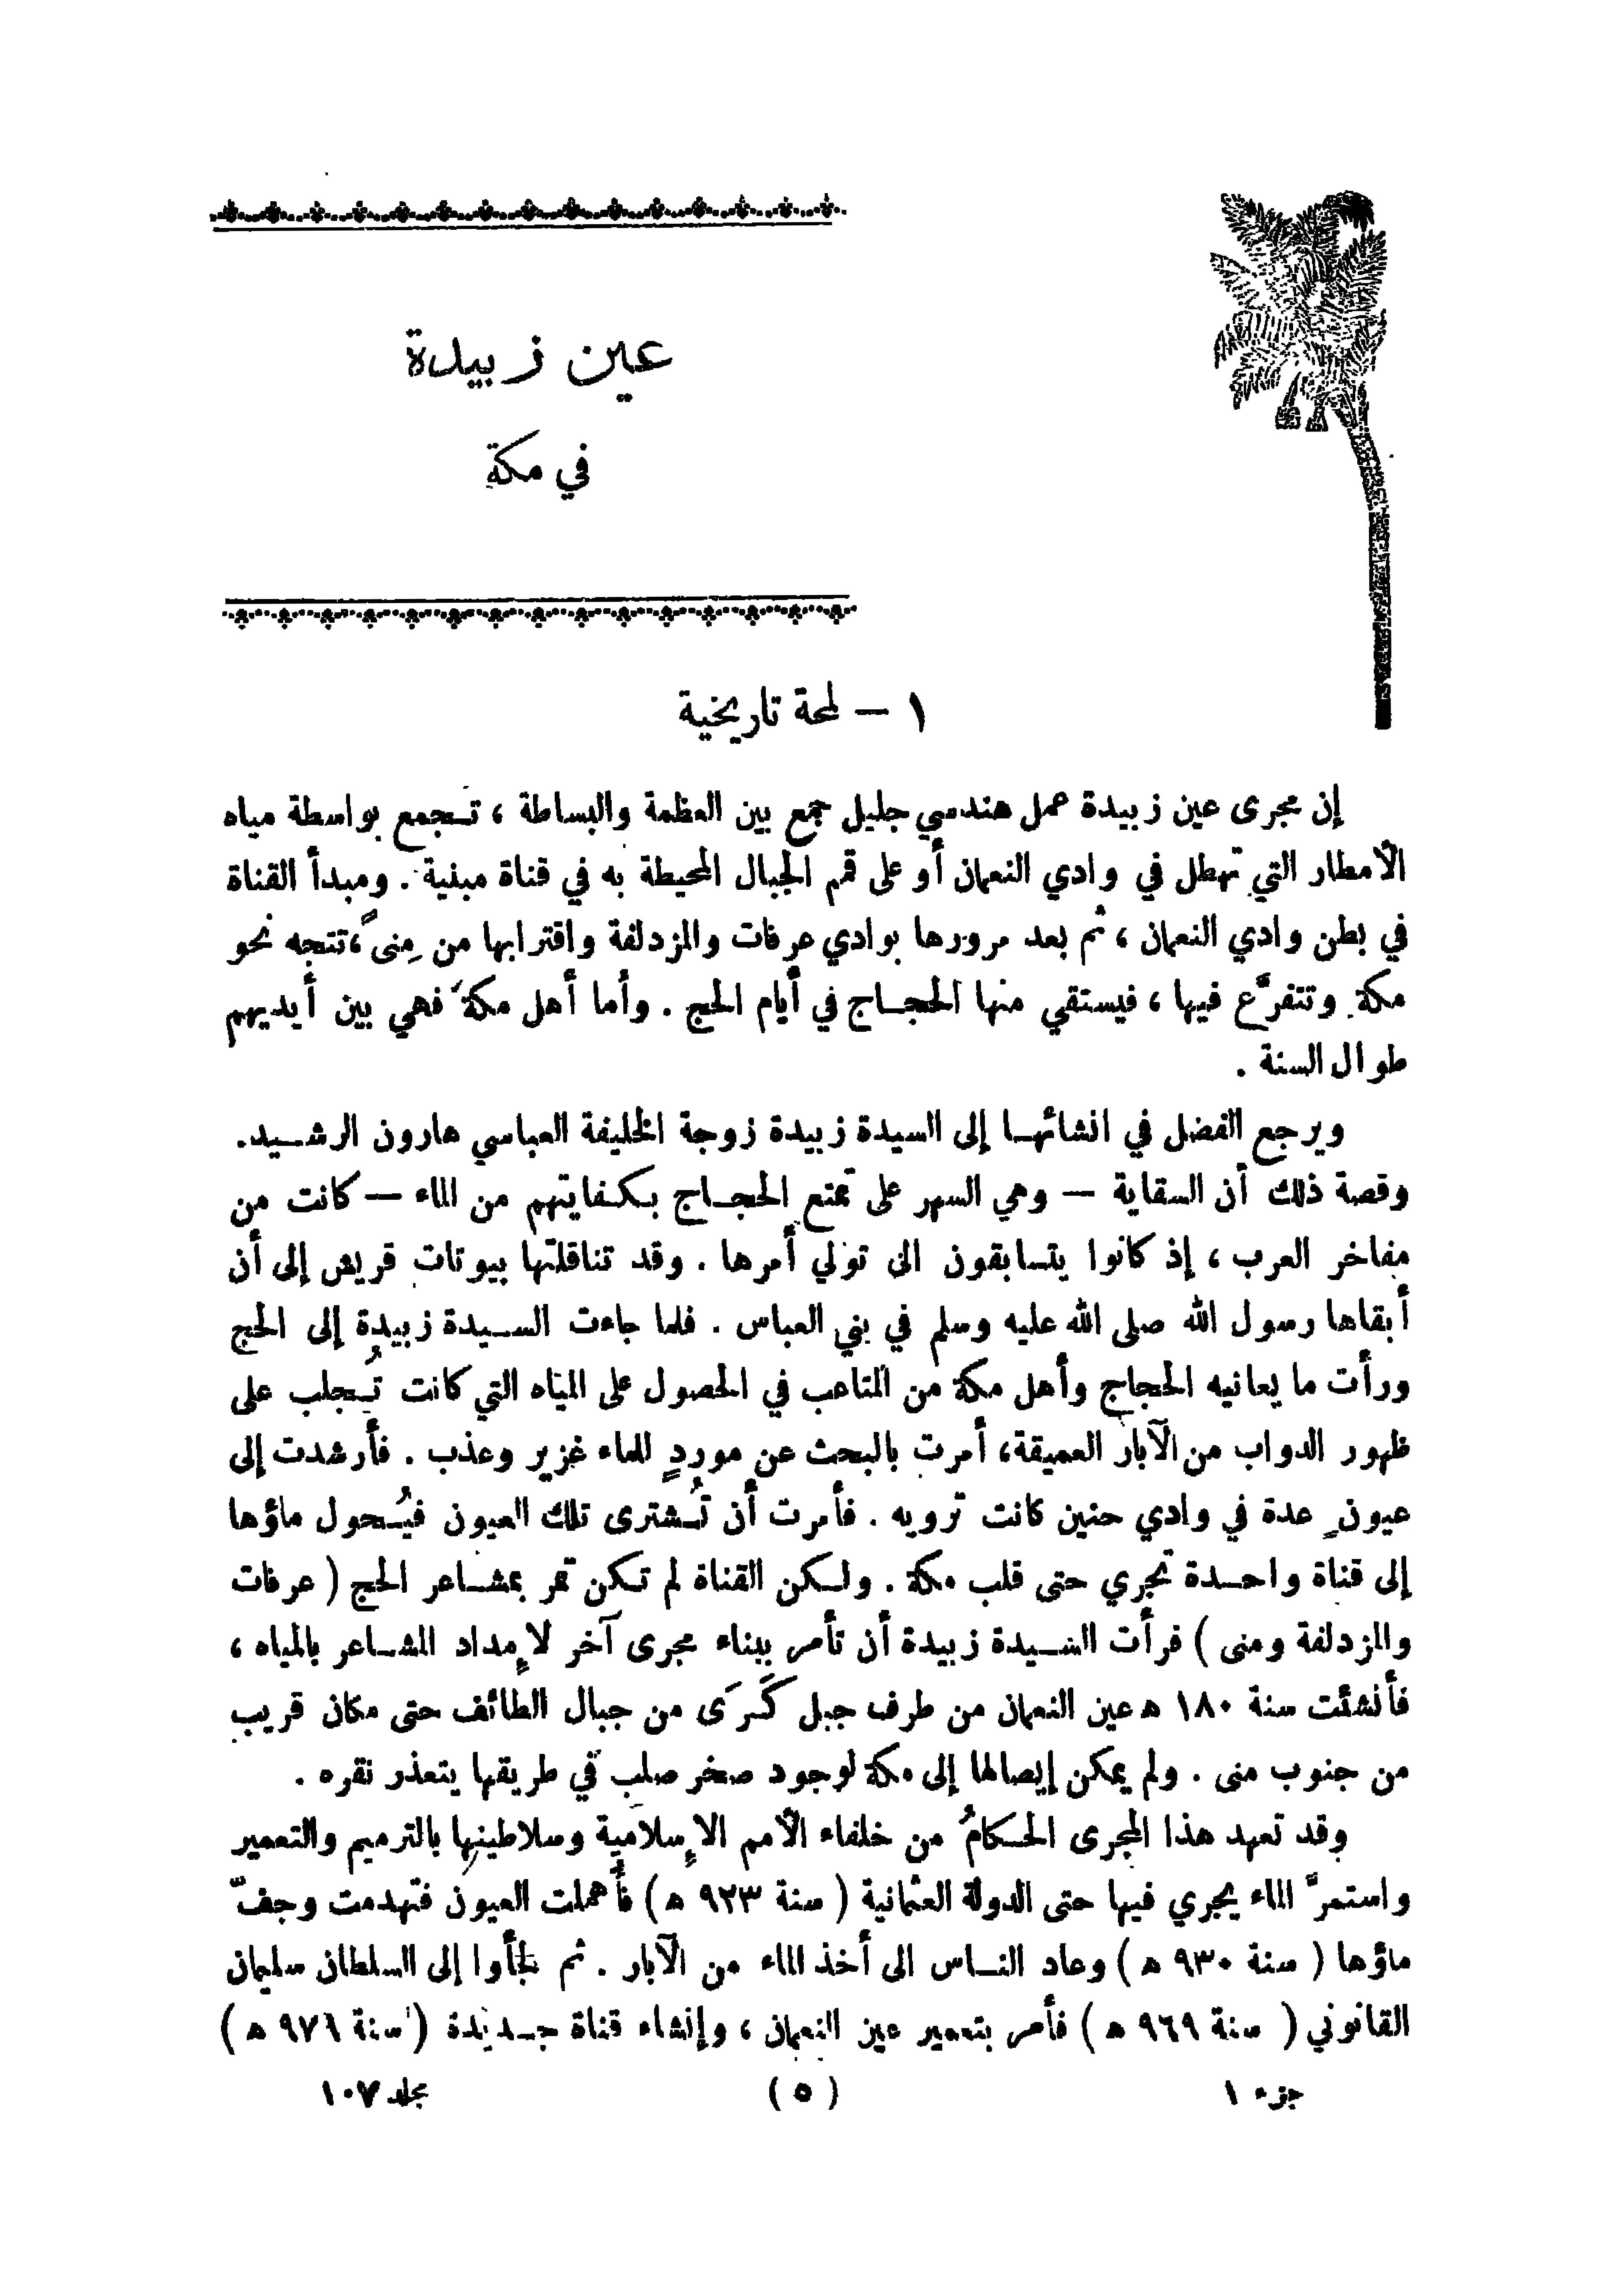 عين زبيدة
في مكة
١ — لمحة تاريخية
إن مجرى عين زبيدة عمل هندسي جليل جمع بين العظمة والبساطة ، تـجمع بواسطة مياه
الأمطار التي تهطل في وادي النعمان أو على قمم الجبال المحيطة به في قناة مبنية . ومبدأ القناة
في بطن وادي النعمان ، ثم بعد مرورها بوادي عرفات والمزدلفة واقترابها من مِنىً ، تتجه نحو
مكة وتتفرَّع فيها ، فيستقي منها الحجـاج في أيام الحج . وأما أهل مكة فهي بين أيديهم
طوال السنة .
ويرجع الفضل في انشائهـا إلى السيدة زبيدة زوجة الخليفة العباسي هارون الرشـيد.
وقصة ذلك أن السقاية — وهي السهر على تمتع الحجـاج بـكـفايتهم من الماء — كانت من
مفاخر العرب ، إذ كانوا يتسابقون الى تولي أمرها . وقد تناقلتها بيوتات قريش إلى أن
أبقاها رسول الله صلى الله عليه وسلم في بني العباس . فلما جاءت السـيدة زبيدة إلى الحج
ورأت ما يعانيه الحجاج وأهل مكة من المتاعب في الحصول على المياه التي كانت تُـجلب على
ظهور الدواب من الآبار العميقة، أمرت بالبحث عن موردٍ للماء غزير وعذب . فأرشدت إلى
عيونٍ عدة في وادي حنين كانت ترويه . فأمرت أن تُـشترى تلك العيون فيُـحول ماؤها
إلى قناة واحـدة تجري حتى قلب مكة . ولـكن القناة لم تـكن تمر بمشـاعر الحج ( عرفات
والمزدلفة ومنى ) فرأت السـيدة زبيدة أن تأمر ببناء مجرى آخر لإمداد المشـاعر بالمياه ،
فأنشئت سنة ١٨٠ هـ عين النعمان من طرف جبل كَـرَى من جبال الطائف حتى مكان قريب
من جنوب منى . ولم يمكن إيصالها إلى مكة لوجود صخر صلب في طريقها يتعذر نقره .
وقد تعهد هذا المجرى الحـكامُ من خلفاء الأمم الإسلامية وسلاطينها بالترميم والتعمير
واستمرَّ الماء يجري فيها حتى الدولة العثمانية ( سنة ٩٢٣ هـ ) فأُهملت العيون فتهدمت وجفّ
ماؤها ( سنة ٩٣٠ هـ ) وعاد النـاس الى أخذ الماء من الآبار . ثم لجأوا إلى السلطان سليمان
القانوني ( سنة ٩٦٩ هـ ) فأمر بتعمير عين النعمان ، وإنشاء قناة جـديدة ( سنة ٩٧٦ هـ )
جزء ١ ( ٥ ) مجلد ١٠٧